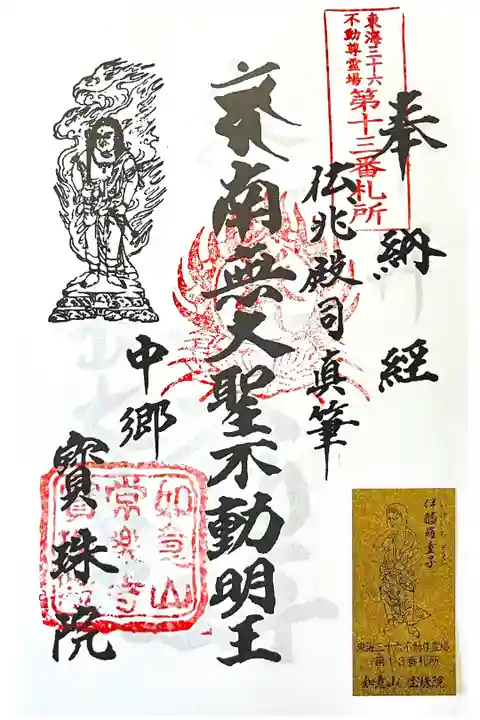 東海三十六
不動尊霊場
第十三番札所
奉納経
伝兆殿司真筆
南無大聖不動明王
中郷
寶珠院
如意山
常楽寺
寶珠院
伊醯羅童子
東海三十六不動尊霊場
第13番札所
如意山 宝珠院